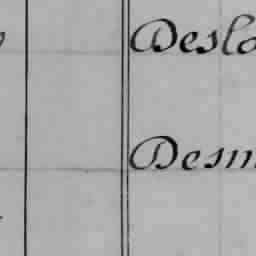 Desla
Desm